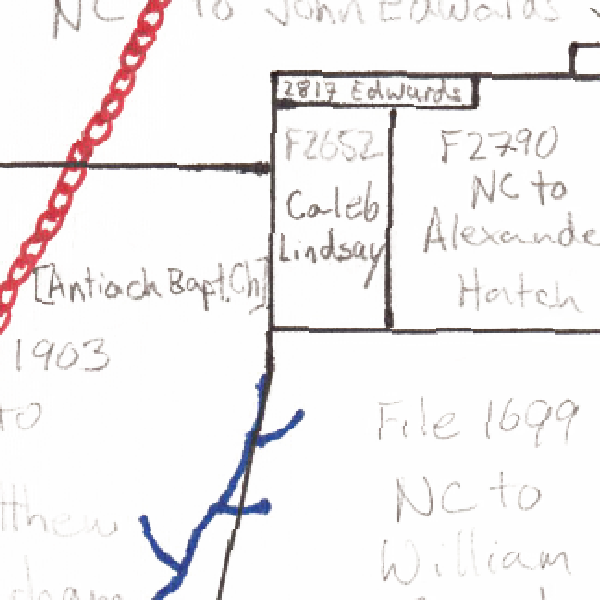 NC to John Edwards
2817 Edwards
F2652
Caleb
Lindsay
F2790
NC to
Alexande
Hatch
[Antioch Bapt. Ch]
1903
to
tthew
File 1699
NC to
William